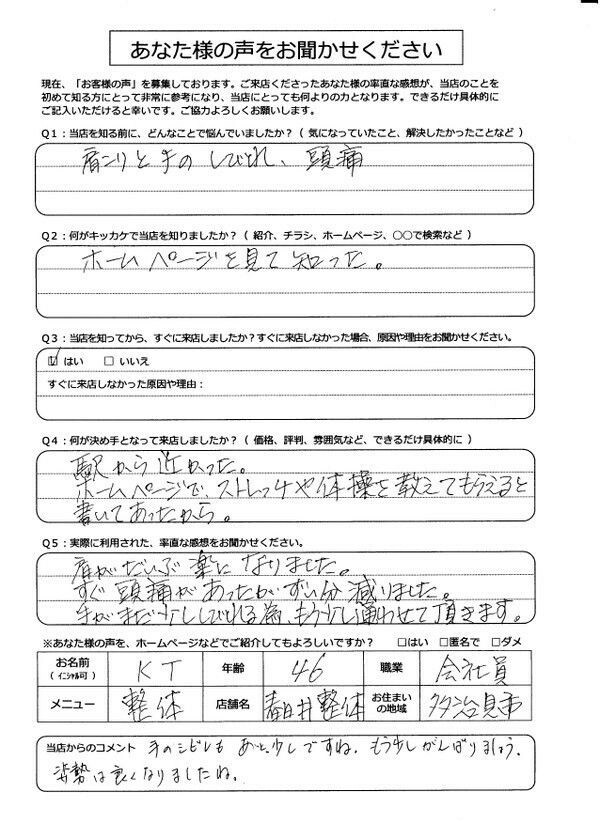 あなた様の声をお聞かせください
現在、「お客様の声」を募集しております。ご来店くださったあなた様の率直な感想が、当店のことを
初めて知る方にとって非常に参考になり、当店にとっても何よりの力となります。できるだけ具体的に
ご記入いただけると幸いです。ご協力よろしくお願いします。
Q1：当店を知る前に、どんなことで悩んでいましたか？（ 気になっていたこと、解決したかったことなど ）
肩こりと手のしびれ、頭痛
Q2：何がキッカケで当店を知りましたか？（ 紹介、チラシ、ホームページ、〇〇で検索など ）
ホームページを見て知った。
Q3：当店を知ってから、すぐに来店しましたか？すぐに来店しなかった場合、原因や理由をお聞かせください。
☑ はい □ いいえ
すぐに来店しなかった原因や理由：
Q4：何が決め手となって来店しましたか？（ 価格、評判、雰囲気など、できるだけ具体的に ）
駅から近かった。
ホームページで、ストレッチや体操を教えてもらえると
書いてあったから。
Q5：実際に利用された、率直な感想をお聞かせください。
肩がだいぶ楽になりました。
すぐ頭痛があったがずい分減りました。
手がまだ少ししびれる為、もう少し通わせて頂きます。
※あなた様の声を、ホームページなどでご紹介してもよろしいですか？ □はい □匿名で □ダメ
お名前（ イニシャル可 ） KT 年齢 46 職業 会社員
メニュー 整体 店舗名 春日井整体 お住まいの地域 多治見市
当店からのコメント 手のシビレも あと少しですね。もう少しがんばりましょう。
姿勢は良くなりましたね。